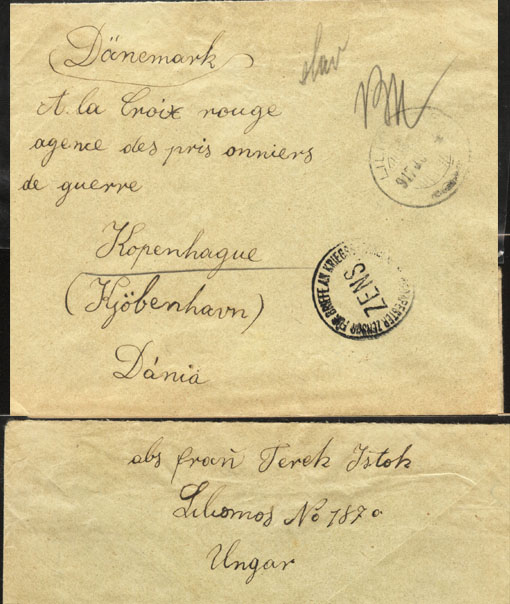 Dänemark
slav
A. la Croix rouge
agence des pris onniers
de guerre
Kopenhague
(Kjöbenhavn)
Dánia
ZENS
ZENSOR FÜR BRIEFE AN KRIEGS
abs frañ Terek Istok
No 187
Ungar